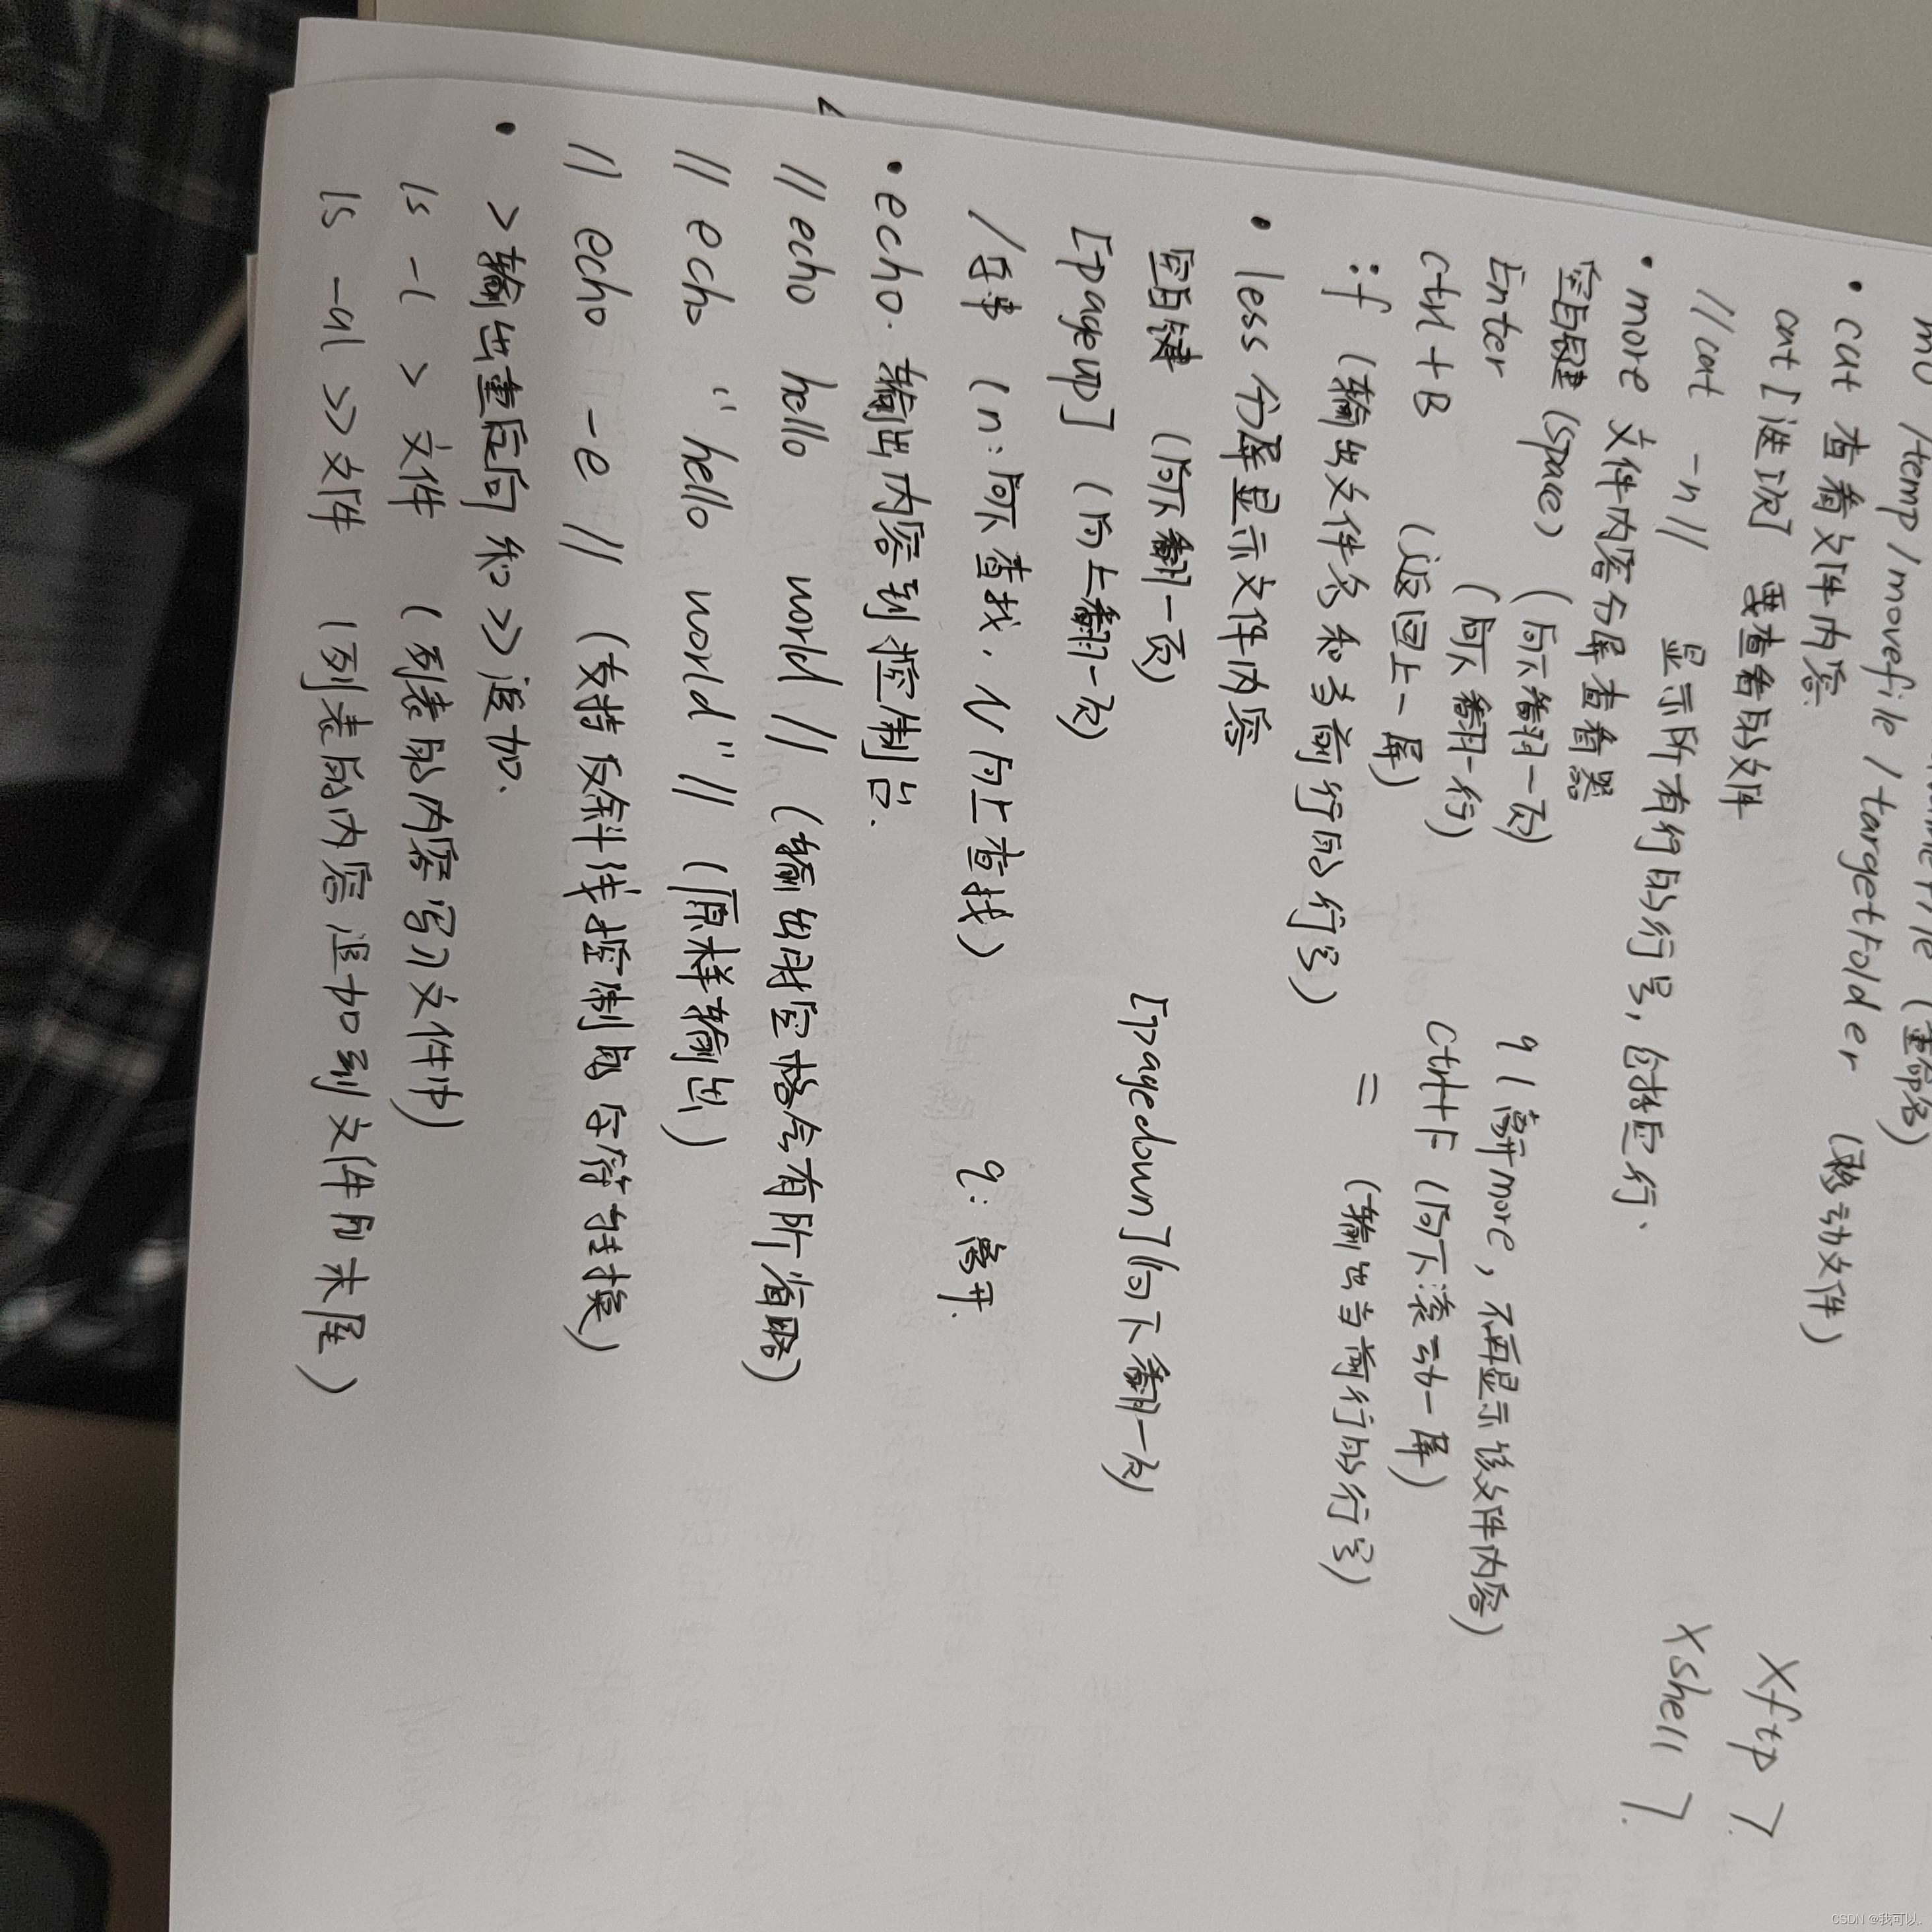 (重命名)
mv /temp/movefile /targetFolder (移动文件)
• cat 查看文件内容.
cat [选项] 要查看的文件
//cat -n// 显示所有行的行号,包括空行、
Xftp 7.
• more 文件内容分屏查看器
Xshell 7.
空白键 (space) (向下翻一页) q (离开more, 不再显示该文件内容)
Enter (向下翻一行) Ctrl+F (向下滚动一屏)
Ctrl+B (返回上一屏)
:f (输出文件名和当前行的行号) = (输出当前行的行号)
• less 分屏显示文件内容
空白键 (向下翻一页) [pagedown] (向下翻一页)
[pageup] (向上翻一页)
/字串 (n:向下查找、N向上查找) q: 离开.
• echo. 输出内容到控制台.
// echo hello world // (输出时空格会有所省略)
// echo "hello world" // (原样输出)
// echo -e // (支持反斜线控制的字符转换)
• >输出重定向 和 >> 追加.
ls -l > 文件 (列表的内容写入文件中)
ls -al >> 文件 (列表的内容追加到文件的末尾)
CSDN @我可以.